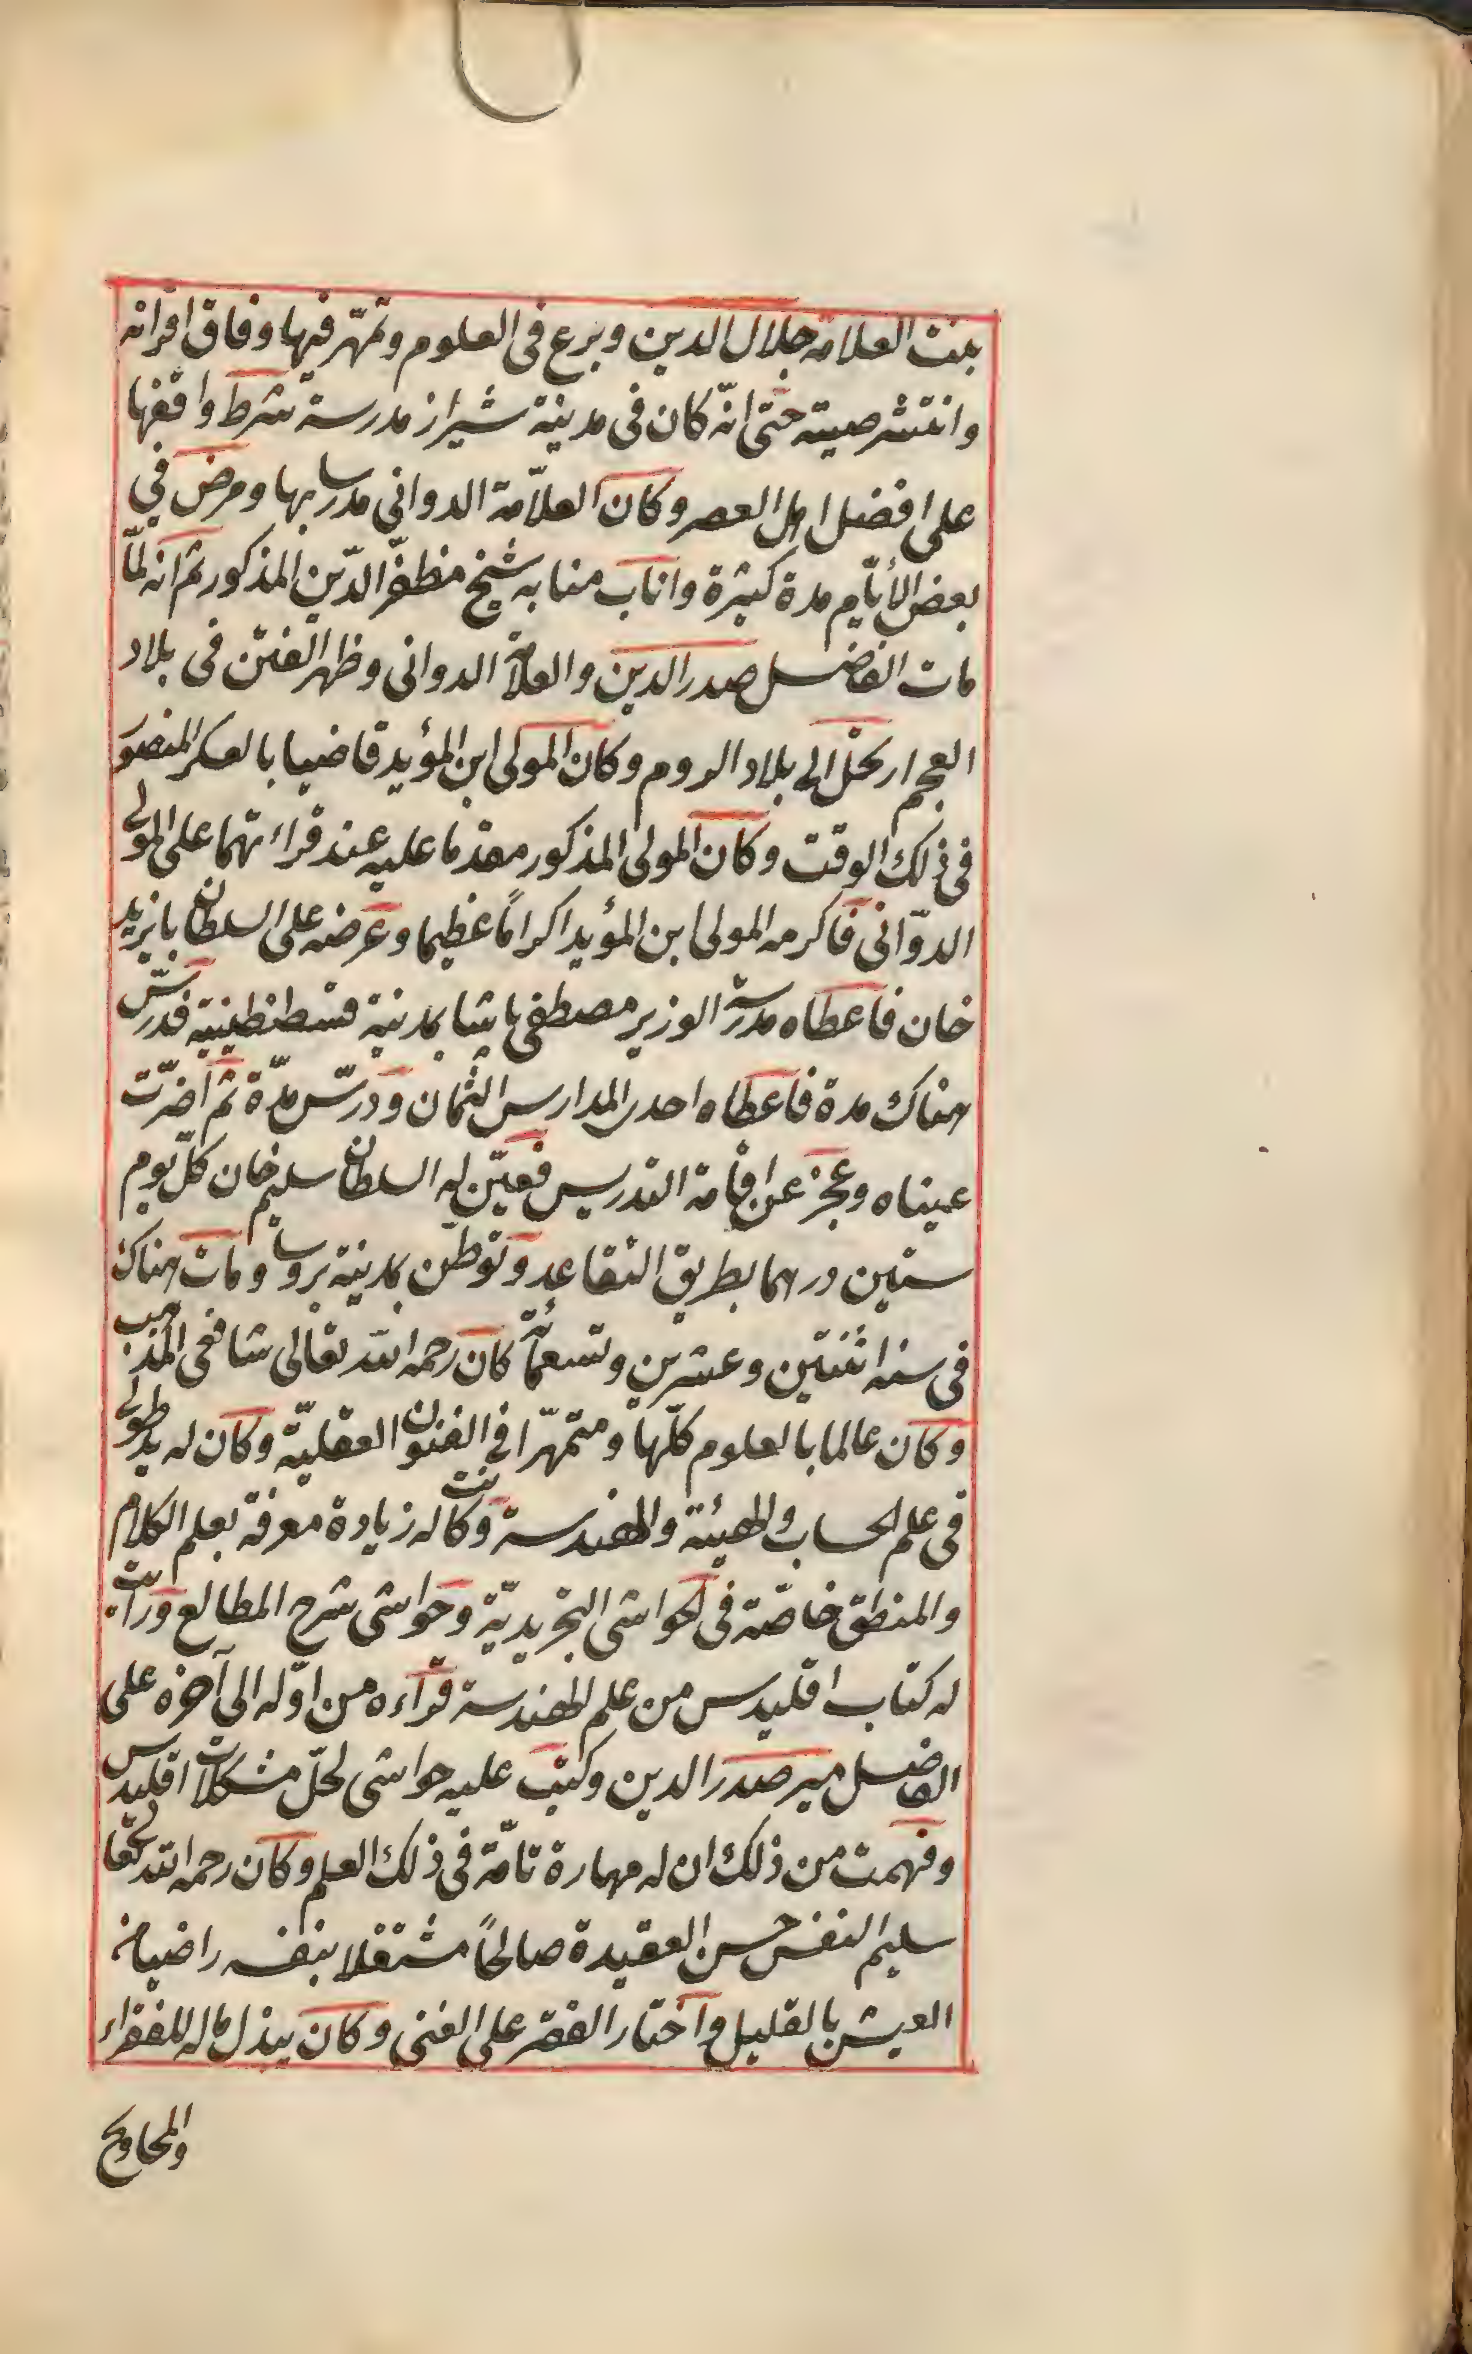 بنت العلامة جلال الدين وبرع فى العلوم وتمهّر فيها وفاق اقرانه
وانتشر صيته حتى انّه كان فى مدينة شيراز مدرسة شرط واقفها
على افضل اهل العصر وكان العلاّمة الدوانى مدرسا بها ومرض في
بعض الأيّام مدة كثيرة واناب منابه شيخ مظفّر الدّين المذكور ثم انه لمّا
مات الفاضل صدر الدين والعلاّمة الدوانى وظهر الفتن فى بلاد
العجم ارتحل الى بلاد الروم وكان المولى ابن المؤيد قاضيا بالعسكر المنصور
فى ذلك الوقت وكان المولى المذكور مقدما عليه عند قراءتهما على المولى
الدوّانى فاكرمه المولى ابن المؤيد اكرامًا عظيما وعرضه على السلطان بايزيد
خان فاعطاه مدرسة الوزير مصطفى پاشا بمدينة قسطنطينية فدرّس
هناك مدة فاعطاه احدى المدارس الثمان ودرّس مدّة ثم اضرّت
عيناه وعجز عن اقامة التدريس فعيّن له السلطان سليم خان كلّ يوم
ستين درهما بطريق التقاعد وتوطّن بمدينة بروسا ومات هناك
فى سنه اثنتين وعشرين وتسعمائة كان رحمه الله تعالى شافعى المذهب
وكان عالما بالعلوم كلّها ومتمهّرا فى الفنون العقليّة وكان له يد طولى
فى علم الحساب والهيئة والهندسة وكانت له زيادة معرفة بعلم الكلام
والمنطق خاصّة فى الحواشى التجريديّة وحواشى شرح المطالع ورأيت
له كتاب اقليدس من علم الهندسة قراءه من اوّله الى آخره على
الفاضل مير صدر الدين وكتب عليه حواشى لحلّ مشكلات اقليدس
وفهمت من ذلك ان له مهارة تامّة فى ذلك العلم وكان رحمه الله تعالى
سليم النفس حسن العقيدة صالحًا مشتغلا بنفسه راضيا من
العيش بالقليل واختار الفقر على الغنى وكان يبذل ماله للفقراء
والمحاويج